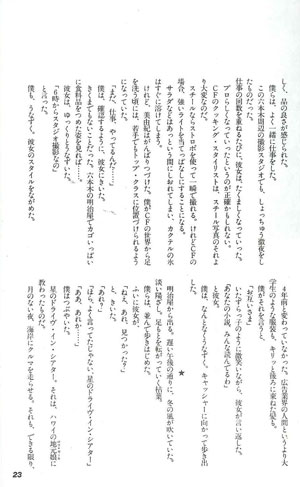 し、品の良さが感じられた。
僕らは、よく一緒に仕事をした。
この六本木周辺の撮影スタジオでも、しょっちゅう徹夜をしたものだった。
仕事の回数を重ねるたびに、彼女はたくましくなっていった。
プロらしくなっていったというのが正確かもしれない。
CFのクッキング・スタイリストは、スチール写真のそれより大変なのだ。
スチールならストロボを使って一瞬で撮れる。けれどCFの
場合、強いライトを当てっぱなしにすることになる。
サラダなどはあっという間にしおれてしまう。カクテルの氷
はすぐに溶けてしまう。
けれど、美由紀はがんばりつづけた。僕がCFの世界から足
を洗う頃には、若手でもトップ・クラスに位置づけられるよう
になっていた。
「まだ、仕事、やってるんだ……」
僕は、確認するように、彼女にきいた。
きくまでもないことだった。六本木の明治屋でカゴいっぱい
に食料品をつめた姿を見れば……。
「6時からスタジオ撮影なの」
彼女は、ゆっくりとうなずいた。
と言った。
僕も、うなずく。彼女のスタイルをながめた。
4年前と変わっていなかった。広告業界の人間というより大
学生のような服装も、キリッと後ろに束ねた髪も。
僕がそれを言うと、
「お互いさまよ」
いたずらっ子のように微笑いながら、彼女が言い返した。
「あなたの小説、みんな読んでるわ」
と彼女。
僕らは、なんとなくうなずく。キャッシャーに向かって歩き出
した。
★
明治屋から出る。遅い午後の通りに、冬の風が吹いていた。
淡い陽ざし。足もとを転がっていく枯葉。
僕らは、並んで歩きはじめた。
ふいに彼女が、
「ねえ、あれ、見つかった？」
ときいた。
「あれ？」
「ほら、よく言ってたじゃない、星のドライヴ・イン・シアター」
「ああ、あれか……」
僕はつぶやいた。
星のドライヴ・イン・シアター。それは、ハワイの地元娘に
教わったものだ。
月のない夜、海岸にクルマを走らせる。それも、できる限り、
23